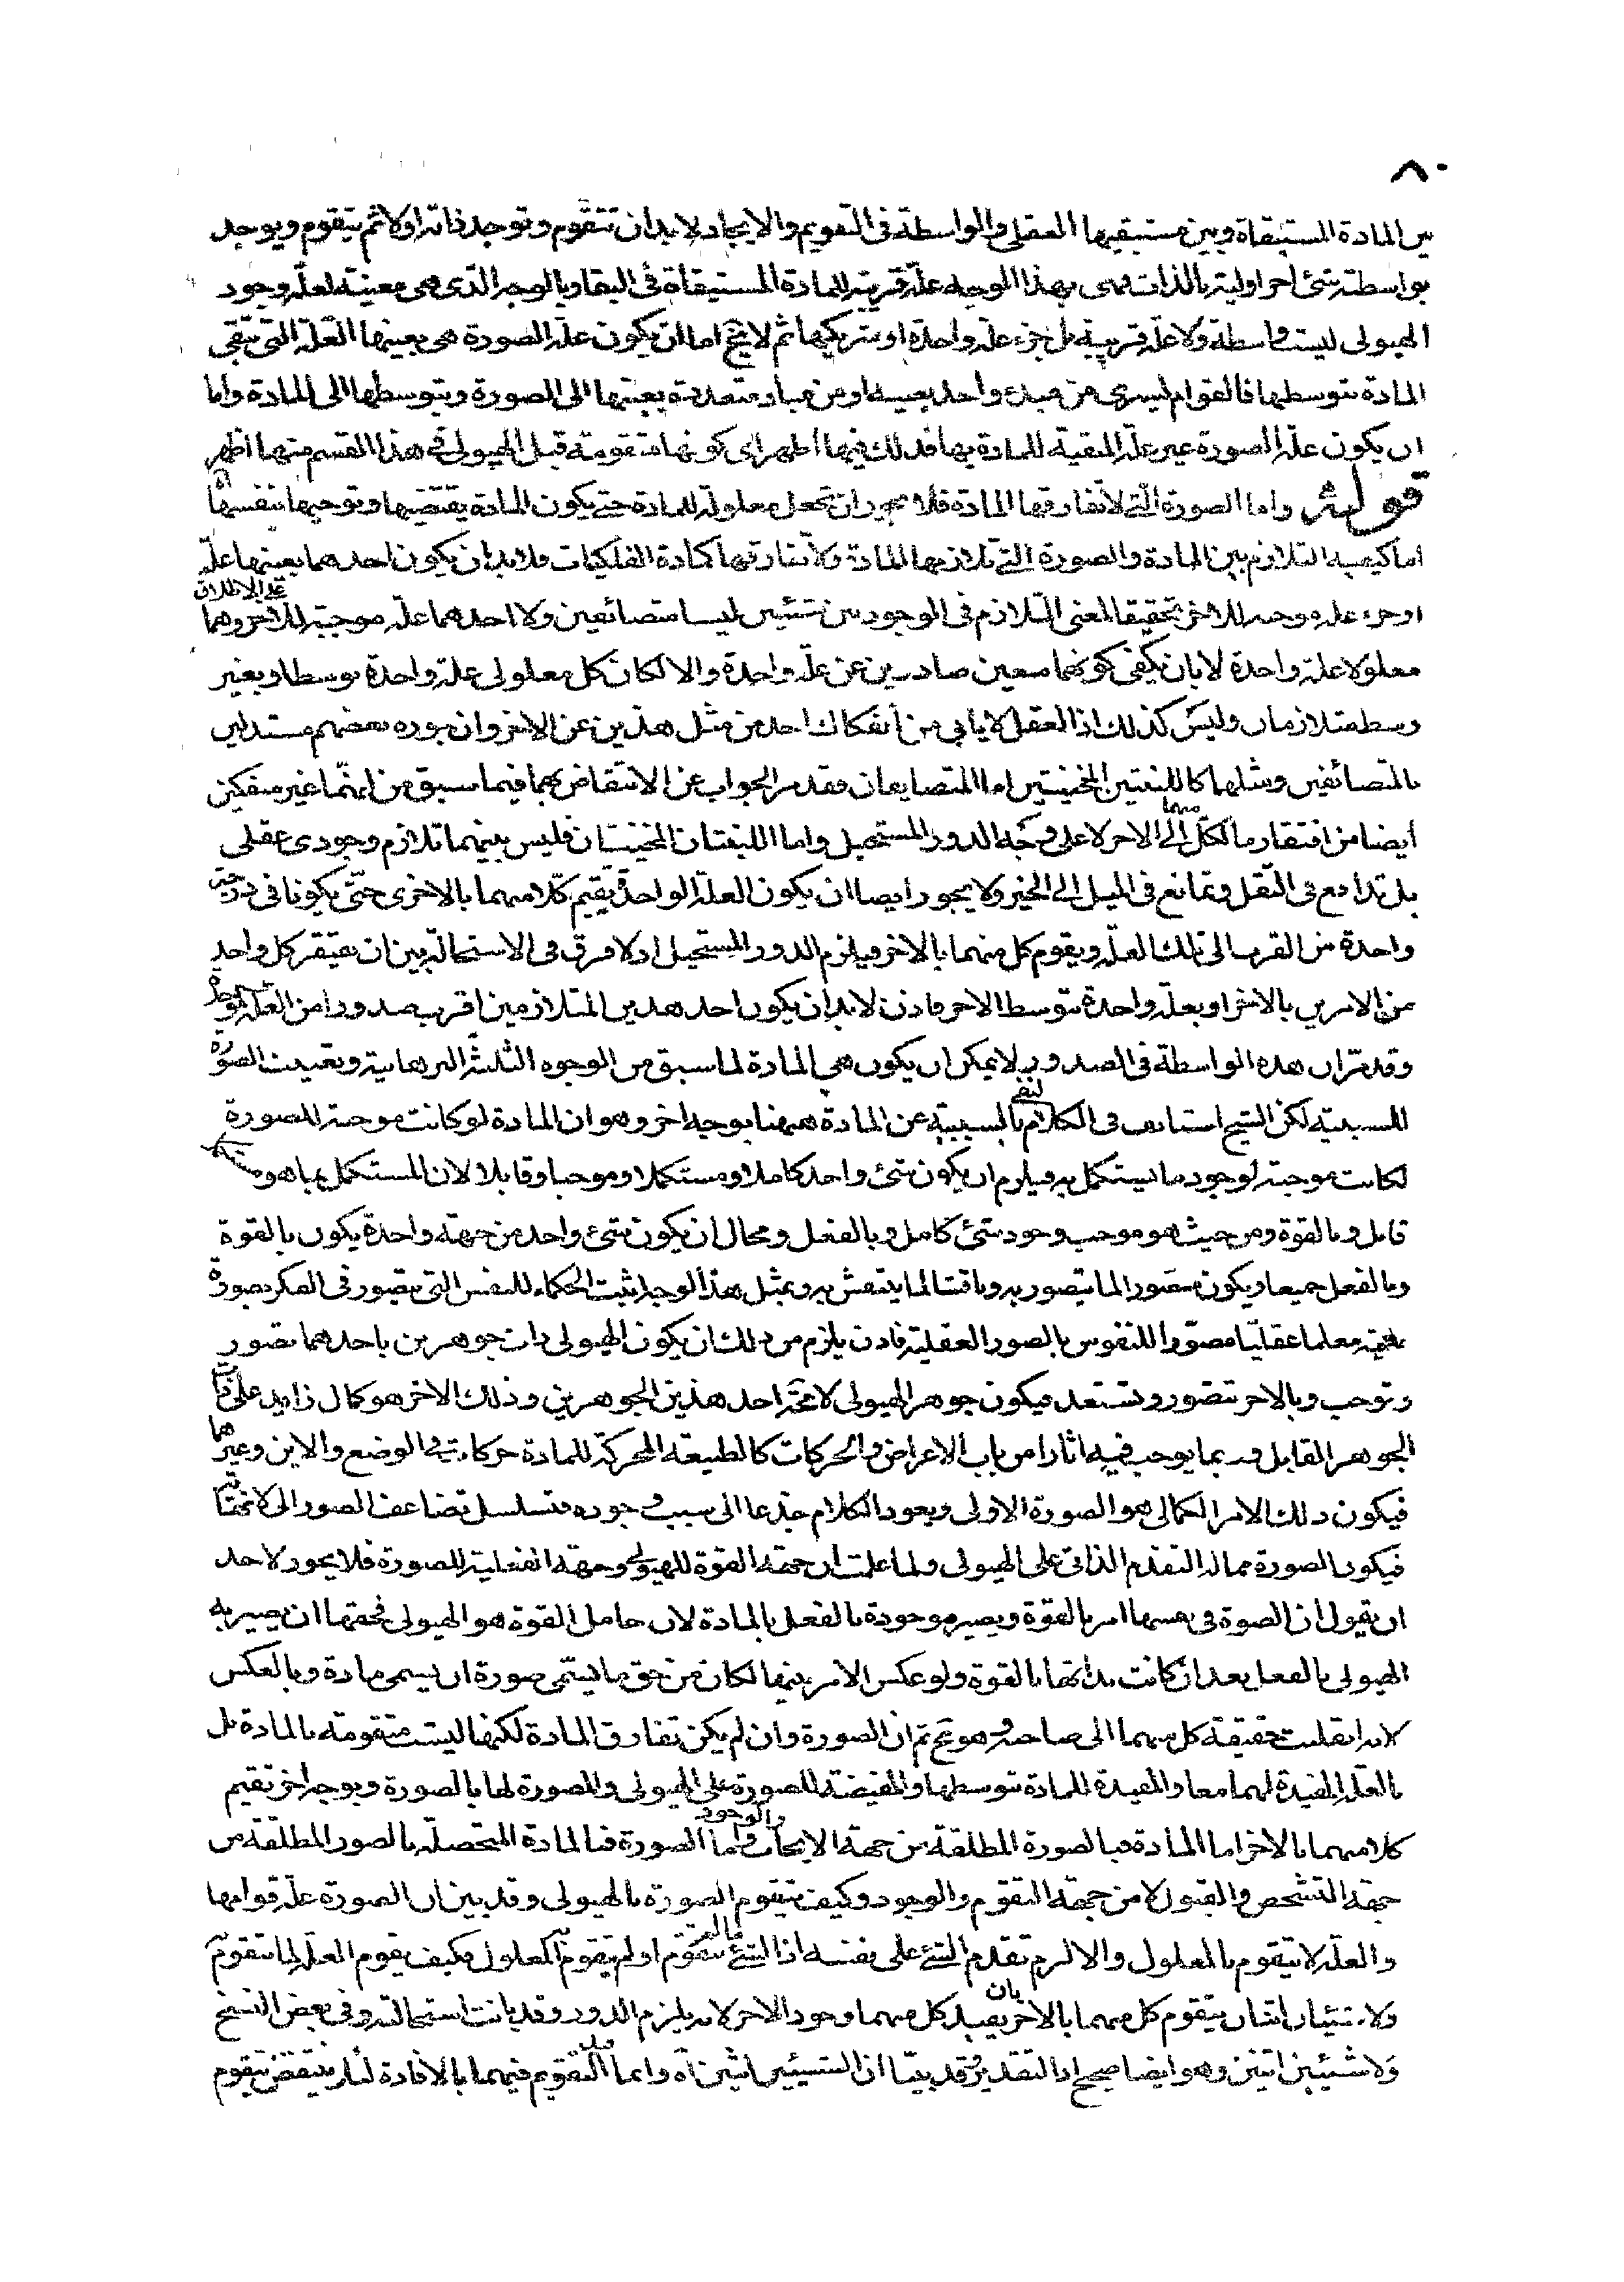 ٨٠
بين المادة المستبقاة وبين مستبقيها العقلى والواسطة فى التقويم والايجاد لابد ان تتقوم وتوجد ذاته اولا ثم يتقوم ويوجد
بواسطته شئ اخر اولية بالذات فهى بهذا الوجه علة قريبة للمادة المستبقاة فى البقاء وبالوجه الذى هى معينة لعلة وجود
الهيولى ليست واسطة ولا علة قريبة بل جزء علة واحدة او شريكها ثم لا يخ اما ان يكون علة الصورة هى بعينها العلة التى تبقى
المادة بتوسطها فالقوام ليسرى من مبدء واحد بعينه او من مباد متعددة بعينها الى الصورة وبتوسطها الى المادة واما
ان يكون علة الصورة غير علة المبقية للمادة بها فذلك فيها اظهر اى كونها متقومة قبل الهيولى فى هذا القسم منها اظهر
قوله واما الصورة التى لا تفارقها المادة فلا يجوز ان تجعل معلولة للمادة حتى يكون المادة يقتضيها وتوجبها بنفسها آه
اما كيفية التلازم بين المادة والصورة التى تلازمها المادة ولا تفارقها كمادة الفلكيات فلابد ان يكون احدهما بعينها علة
او جزء علة موجبة للاخر تحقيقا لمعنى التلازم فى الوجود بين شيئين ليسا متضائفين ولا احدهما علة موجبة للاخر وهما على الاطلاق
معلولا علة واحدة لا بان يكفى كونهما معين صادرين عن علة واحدة والا لكان كل معلولى علة واحدة بوسط او بغير
وسط متلازمان وليس كذلك اذ العقل لا يابى من انفكاك احد من مثل هذين عن الاخر وان جوزه بعضهم مستدلين
بالمتضائفين ومثلهما كاللبنتين المنحنيتين اما المتضايفان فقد مر الجواب عن الانتقاض بهما فيما سبق من انهما غير منفكين
أيضا من افتقار ما لكل منهما الى الاخر لا على وجه الدور المستحيل واما اللبنتان المنحنيتان فليس بينهما تلازم وجودى عقلى
بل تدافع فى الثقل وتمانع فى الميل الى الحيز ولا يجوز ايضا ان يكون العلة الواحدة يقيم كلا منهما بالاخرى حتى يكونا فى درجة
واحدة من القرب الى تلك العلة ويقوم كل منهما بالاخر فيلزم الدور المستحيل اذ لا فرق فى الاستحالة بين ان يفتقر كل واحد
من الامرين بالاخر او بعلة واحدة بتوسط الاخر فاذن لابد ان يكون احد هذين المتلازمين اقرب صدورا من العلة الموجدة
وقد مر ان هذه الواسطة فى الصدور لا يمكن ان يكون هى المادة لما سبق من الوجوه الثلثة البرهانية وتعينت الصورة
للسببية لكن الشيخ استانف فى الكلام لنفى السببية عن المادة ههنا بوجه اخر وهو ان المادة لو كانت موجبة للصورة
لكانت موجبة لوجود ما يستكمل به فيلزم ان يكون شئ واحد كاملا ومستكملا وموجبا وقابلا لان المستكمل بما هو مستكمل
قابل وبالقوة ومن حيث هو موجب وجود شئ كامل وبالفعل ومحال ان يكون شئ واحد من جهة واحدة يكون بالقوة
وبالفعل جميعا ويكون مصورا لما يتصور به ونقاشا لما ينتقش به وبمثل هذا الوجه اثبت الحكماء للنفس التى يتصور فى الفكر بصورة
علمية معلما عقليا مصورا للنفوس بالصور العقلية فاذن يلزم من ذلك ان يكون الهيولى ذات جوهرين باحدهما تصور
وتوجب وبالاخر تتصور وتستعد فيكون جوهر الهيولى لا محة احد هذين الجوهرين وذلك الاخر هو كمال زايد على ذات
الجوهر القابل وربما يوجب فيه اثارا من باب الاعراض والحركات كالطبيعة المحركة للمادة حركات فى الوضع والاين وغيرهما
فيكون ذلك الامر الكمالى هو الصورة الاولى ويعود الكلام جذعا الى سبب وجوده فتسلسل تضاعف الصور الى لا نهاية
فيكون الصورة مما له التقدم الذاتى على الهيولى ولما علمت ان جهة القوة للهيولى وجهة الفعلية للصورة فلا يجوز لاحد
ان يقول ان الصورة فى نفسها امر بالقوة ويصير موجودة بالفعل بالمادة لان حامل القوة هو الهيولى فحقها ان يصير به
الهيولى بالفعل بعد ان كانت بذاتها بالقوة ولو عكس الامر بينهما لكان من حق ما يسمى صورة ان يسمى مادة وبالعكس
لانه انقلبت حقيقة كل منهما الى صاحبه وهو مح ثم ان الصورة وان لم يكن تفارق المادة لكنها ليست متقومة بالمادة بل
بالعلة المفيدة لهما معا والمفيدة للمادة بتوسطها والمفيضة للصورة على الهيولى والمصورة لها بالصورة وبوجه اخر تقيم
كلا منهما بالاخر اما المادة فبالصورة المطلقة من جهة الايجاب والوجود واما الصورة فبالمادة المتحصلة بالصور المطلقة من
جهة التشخص والقبول لا من جهة التقوم والوجود وكيف يتقوم الصورة بالهيولى وقد بين ان الصورة علة قوامها
والعلة لا يتقوم بالمعلول والا لزم تقدم الشئ على نفسه اذ الشئ ما لم يتقوم اولا لم يتقوم به المعلول فكيف يقوم العلة لما تتقوم
ولا شيئان اثنان يتقوم كل منهما بالاخر بان يفيد كل منهما وجود الاخر لانه يلزم الدور وقد بانت استحالته وفى بعض النسخ
ولا شيئين اثنين وهو ايضا صحيح اذ التقدير وقد بينا ان الشيئين اثنين آه وانما قيد التقويم فيهما بالافادة لئلا ينتقض بتقوم